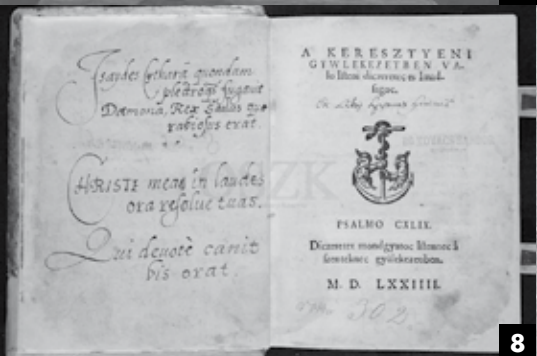 Isaydes Cytharā quondam
plectroqȝ fugavit
Dæmonia, Rex Saulus quo
rabiosus erat.
CHRISTE meas in laudes
ora resolue tuas.
Qui deuotè canit
bis orat.
A' KERESZTYENI
GYWLEKEZETBEN VA-
lo Isteni diczeretec es Imad-
sagoc.
PSALMO CXLIX.
Diczeretet mondgyatoc Istennec à
szenteknec gyülekezetiben.
M. D. LXXIIII.
302
8